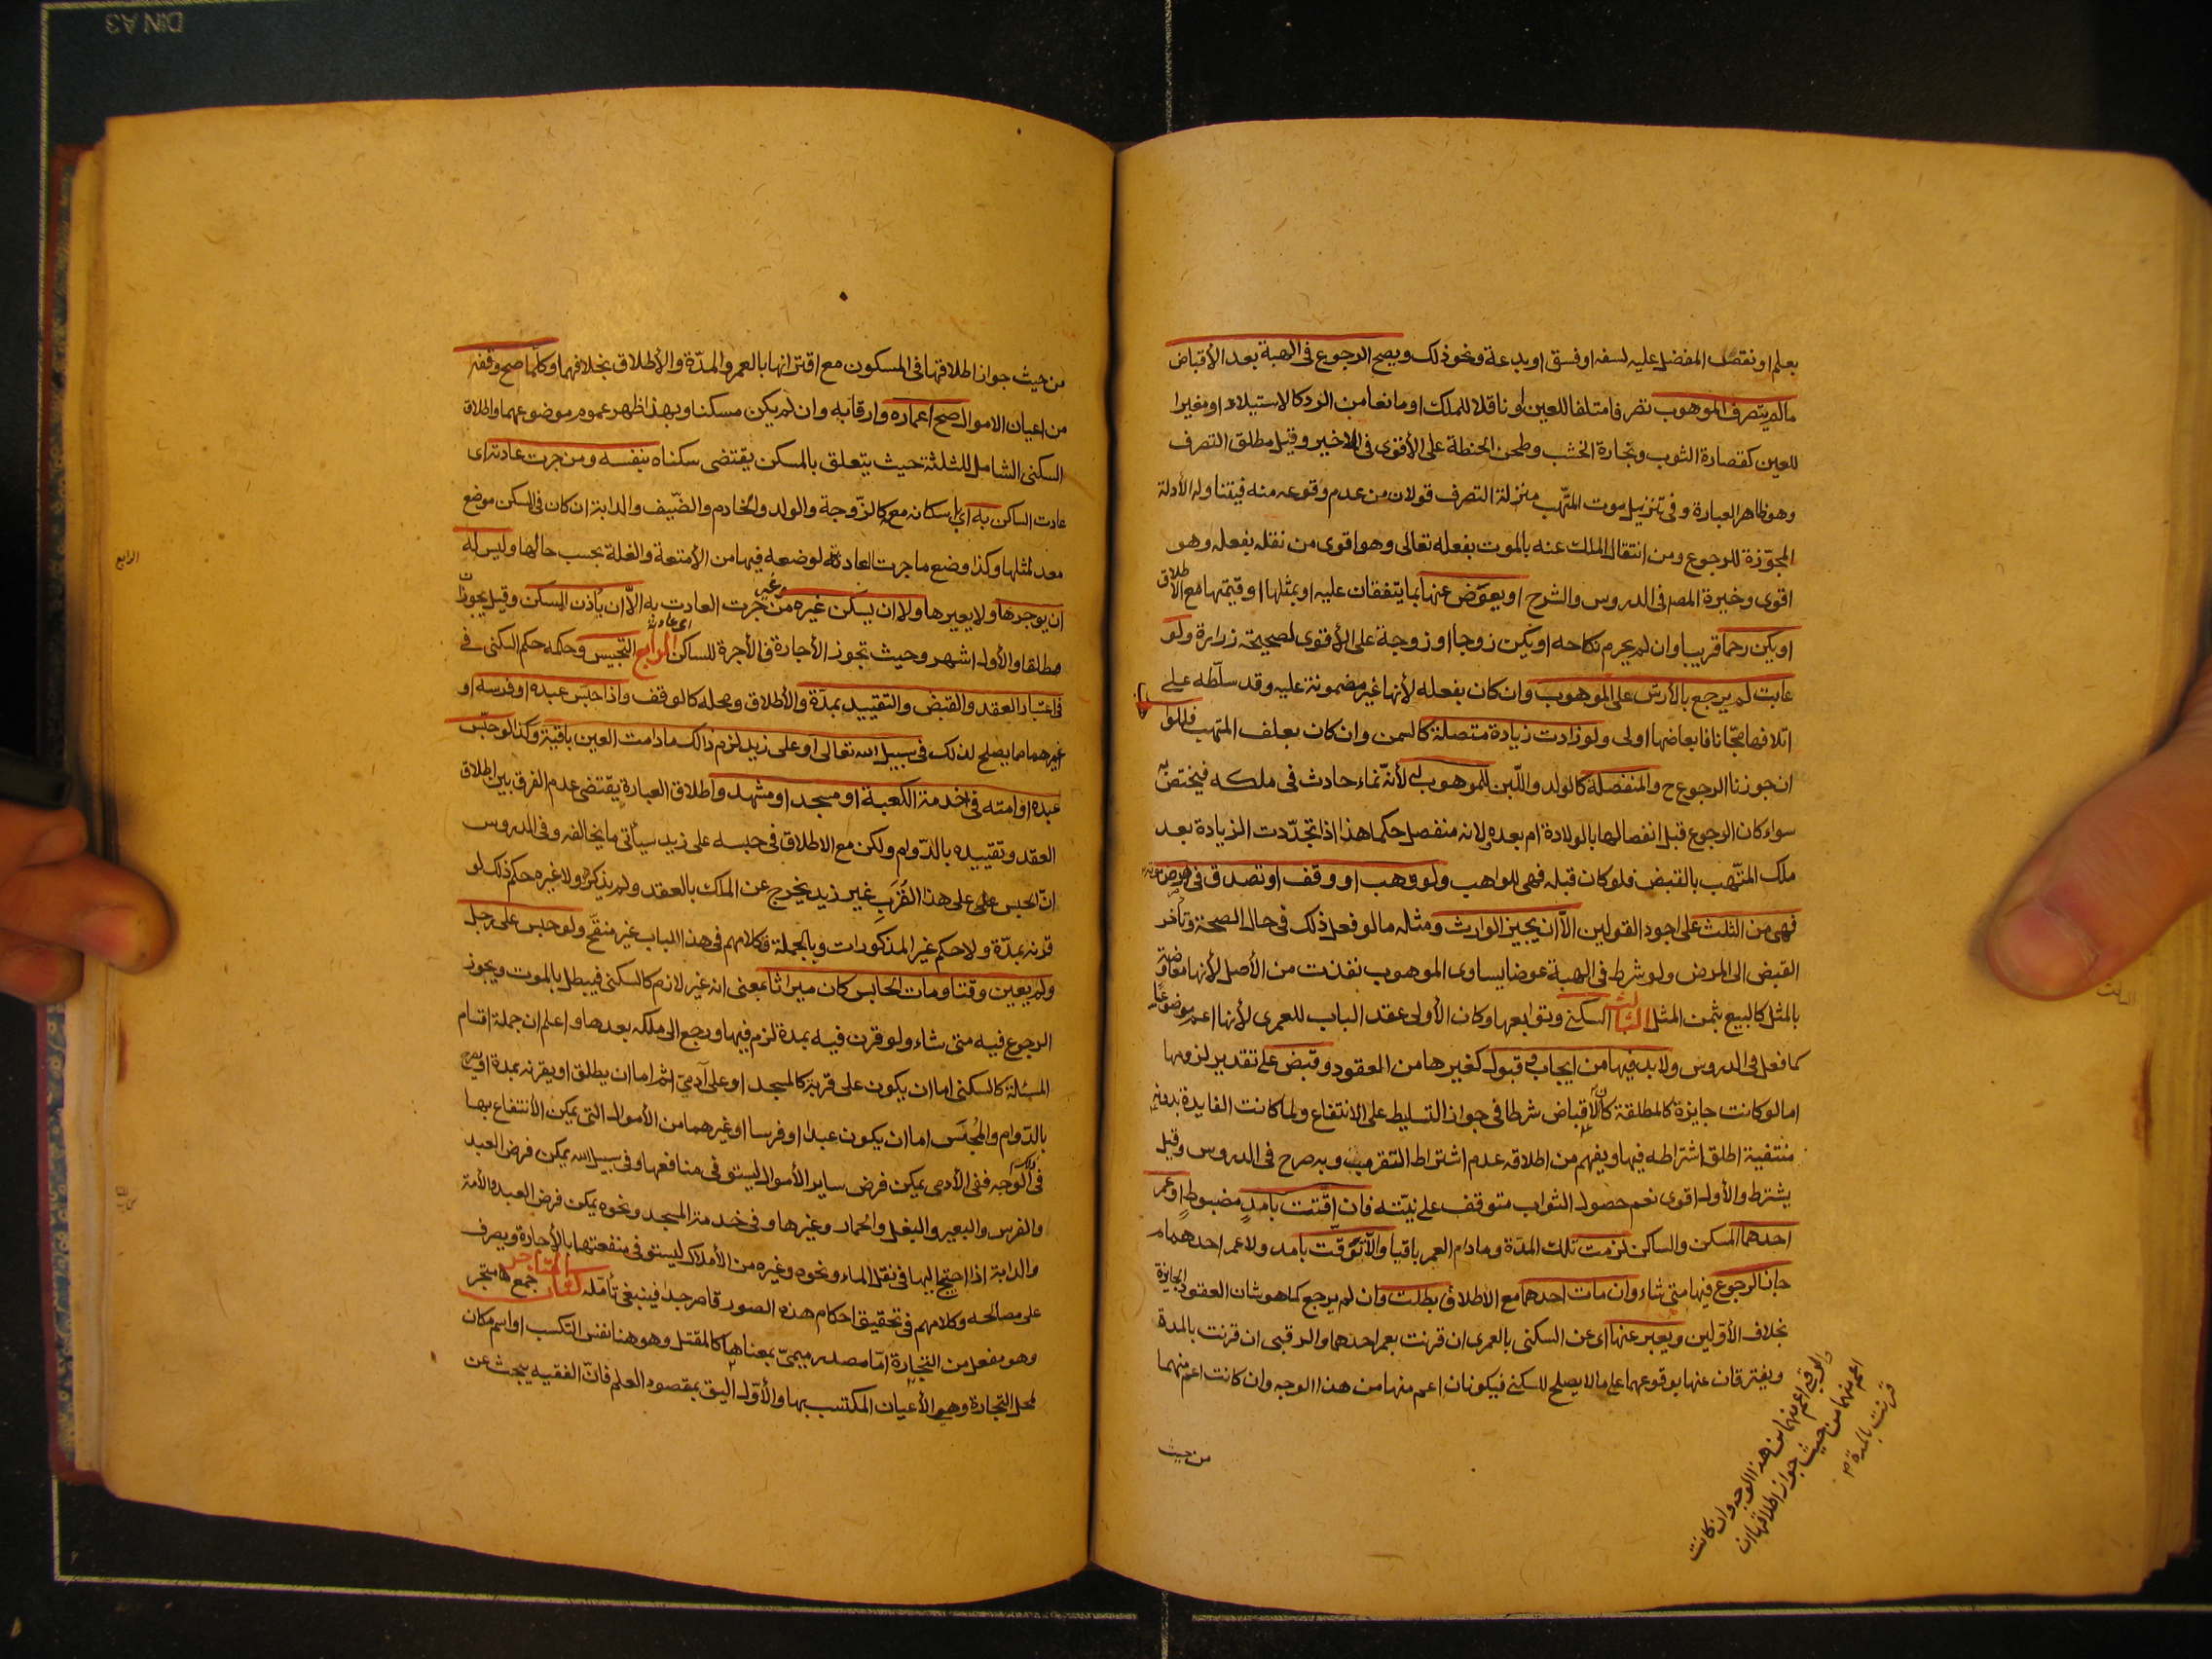 بعلم او نقص المفضل عليه لسفه او فسق او بدعة ونحو ذلك ويصح الرجوع في الهبة بعد الأقباض
مالم يتصرف الموهوب تصرفا متلفا للعين او ناقلا للملك او مانعا من الرد كالاستيلاد او مغيرا
للعين كقصارة الثوب ونجارة الخشب وطحن الحنطة على الأقوى في الاخير وقيل مطلق التصرف
وهو ظاهر العبارة وفي تنزيل موت المتّهب منزلة التصرف قولان من عدم وقوعه منه فيتناوله الأدلة
المجوّزة للرجوع ومن انتقال الملك عنه بالموت بفعله تعالى وهو اقوى من نقله بفعله وهو
اقوى وخيرة المصر في الدروس والشرح او يعوّض عنها بما يتفقان عليه او بمثلها او قيمتها مع الاطلاق
او يكن رحما قريبا وان لم يحرم نكاحه او يكن زوجا او زوجة على الأقوى لصحيحة زرارة ولو
عابت لم يرجع بالأرش على الموهوب وان كان بفعله لأنها غير مضمونة عليه وقد سلّطه على
اتلافها مجّانا فابعاضها اولى ولو زادت زيادة متصلة كالسمن وان كان بعلف المتهب فللوا
ان جوزنا الرجوع ح والمنفصلة كالولد واللّبن للموهوب له لأنّه نماء حادث في ملكه فيختص به
سواء كان الرجوع قبل انفصالها بالولادة ام بعده لانه منفصل حكما هذا اذا تجدّدت الزيادة بعد
ملك المتّهب بالقبض فلو كان قبله فهي للواهب ولو وهب او وقف او تصدق في مرض موته
فهي من الثلث على اجود القولين الّا ان يجيز الوارث ومثله ما لو فعل ذلك في حال الصحة وتأخر
القبض الى المرض ولو شرط في الهبة عوضا يساوى الموهوب نفذت من الأصل لأنها معاوضة
بالمثل كالبيع بثمن المثل الثالث السكنى وتوابعها وكان الأولى عقد الباب للعمرى لأنها اعم موضوعا
كما فعل في الدروس ولابد فيها من ايجاب وقبول كغيرها من العقود وقبض على تقدير لزومها
اما لو كانت جايزة كالمطلقة كان الاقباض شرطا في جواز التسليط على الانتفاع ولما كانت الفايدة بدونه
منتفية اطلق اشتراطه فيها ويفهم من اطلاقه عدم اشتراط التقرب وبه صرح في الدروس وقيل
يشترط والأول اقوى نعم حصول الثواب متوقف على نيّته فان اقّتت بامدٍ مضبوطٍ او عمر
احدهما المسكن والساكن لزمت تلك المدّة وما دام العمر باقيا والّا توقّت بامد ولا عمر احدهما
جاز الرجوع فيها متى شاء وان مات احدهما مع الاطلاق بطلت وان لم يرجع كما هو شان العقود الجايزة
بخلاف الأولين ويعبر عنها اى عن السكنى بالعمرى ان قرنت بعمر احدهما والرقبى ان قرنت بالمدة
ويفترقان عنها بوقوعهما على مالا يصلح للسكنى فيكونان اعم منها من هذا الوجه وان كانت اعم منهما
من حيث
والرقبى اعم منهما من هذا الوجه وان كانت
اعم منهما من حيث جواز اطلاقها ان
قرنت بالمدة
من حيث جواز اطلاقها في المسكون مع اقترانها بالعمر والمدّة والأطلاق بخلافهما وكلّما صح وقفه
من اعيان الاموال صح اعماره وارقابه وان لم يكن مسكنا وبهذا ظهر عموم موضوعهما واطلاق
السكنى الشامل للثلثة حيث يتعلق بالمسكن يقتضى سكناه بنفسه ومن جرت عادته اى
عادت الساكن به اي اسكانه معه كالزّوجة والولد والخادم والضّيف والدابة ان كان في السكن موضع
معد لمثلها وكذا وضع ما جرت العادة لوضعه فيها من الأمتعة والغلة بحسب حالها وليس له
ان يوجرها ولا يعيرها ولا ان يسكن غيره وغير من جرت العادت به الّا ان يأذن المسكن وقيل يجوز ان
مطلقا والأول اشهر وحيث تجوز الأجارة فالأجرة للساكن الرابع التحبيس وحكمه حكم السكنى في
في اعتبار العقد والقبض والتقييد بمدّة والأطلاق ومحله كالوقف واذا حبس عبده او فرسه او
غيرهما مما يصلح لذلك في سبيل الله تعالى او على زيد لزم ذالك مادامت العين باقية وكذا لو حبّس
عبده او امته في خدمة الكعبة او مسجد او مشهد واطلاق العبارة يقتضى عدم الفرق بين اطلاق
العقد وتقييده بالدّوام ولكن مع الاطلاق في حبسه على زيد سيأتى ما يخالفه وفي الدروس
انّ الحبس على هذا القُرَب غير زيد يخرج عن الملك بالعقد ولم يذكر هو ولا غيره حكم ذلك لو
قرنه بمدّة ولا حكم غير المذكورات وبالجملة فكلامهم في هذا الباب غير منقّح ولو حبس على رجل
ولم يعين وقتا ومات الحابس كان ميراثا بمعنى انه غير لازم كالسكنى فيبطل بالموت ويجوز
الرجوع فيه متى شاء ولو قرن فيه بمدة لزم فيها ورجع الى ملكه بعدها واعلم ان جملة اقسام
المسئلة كالسكنى اما ان يكون على قربة كالمسجد او على آدمى ثم اما ان يطلق او يقرنه بمدة او يصرح
بالدّوام والمُحبَس اما ان يكون عبدا او فرسا او غيرهما من الأموال التى يمكن الأنتفاع بها
في ذلك الوجه ففي الأدمى يمكن فرض ساير الأموال ليستوفى منافعها وفي سبيل الله يمكن فرض العبد
والفرس والبعير والبغل والحمار وغيرها وفي خدمة المسجد ونحوه يمكن فرض العبد والأمة
والدابة اذا احتيج اليها في نقل الماء ونحوه وغيره من الأملاك ليستوفى منفعتها بالأجارة ويصرف
على مصالحه وكلامهم في تحقيق احكام هذه الصور قاصر جدا فينبغى تأمله كتاب المتاجر جمع متجر
وهو مفعل من التجارة امّا مصدر ميمىّ بمعناها كالمقتل وهو هنا نفس التكسب او اسم مكان
لمحل التجارة وهى الأعيان المكتسب بها والأوّل اليق بمقصود العلم فانّ الفقيه يبحث عن
الرابع